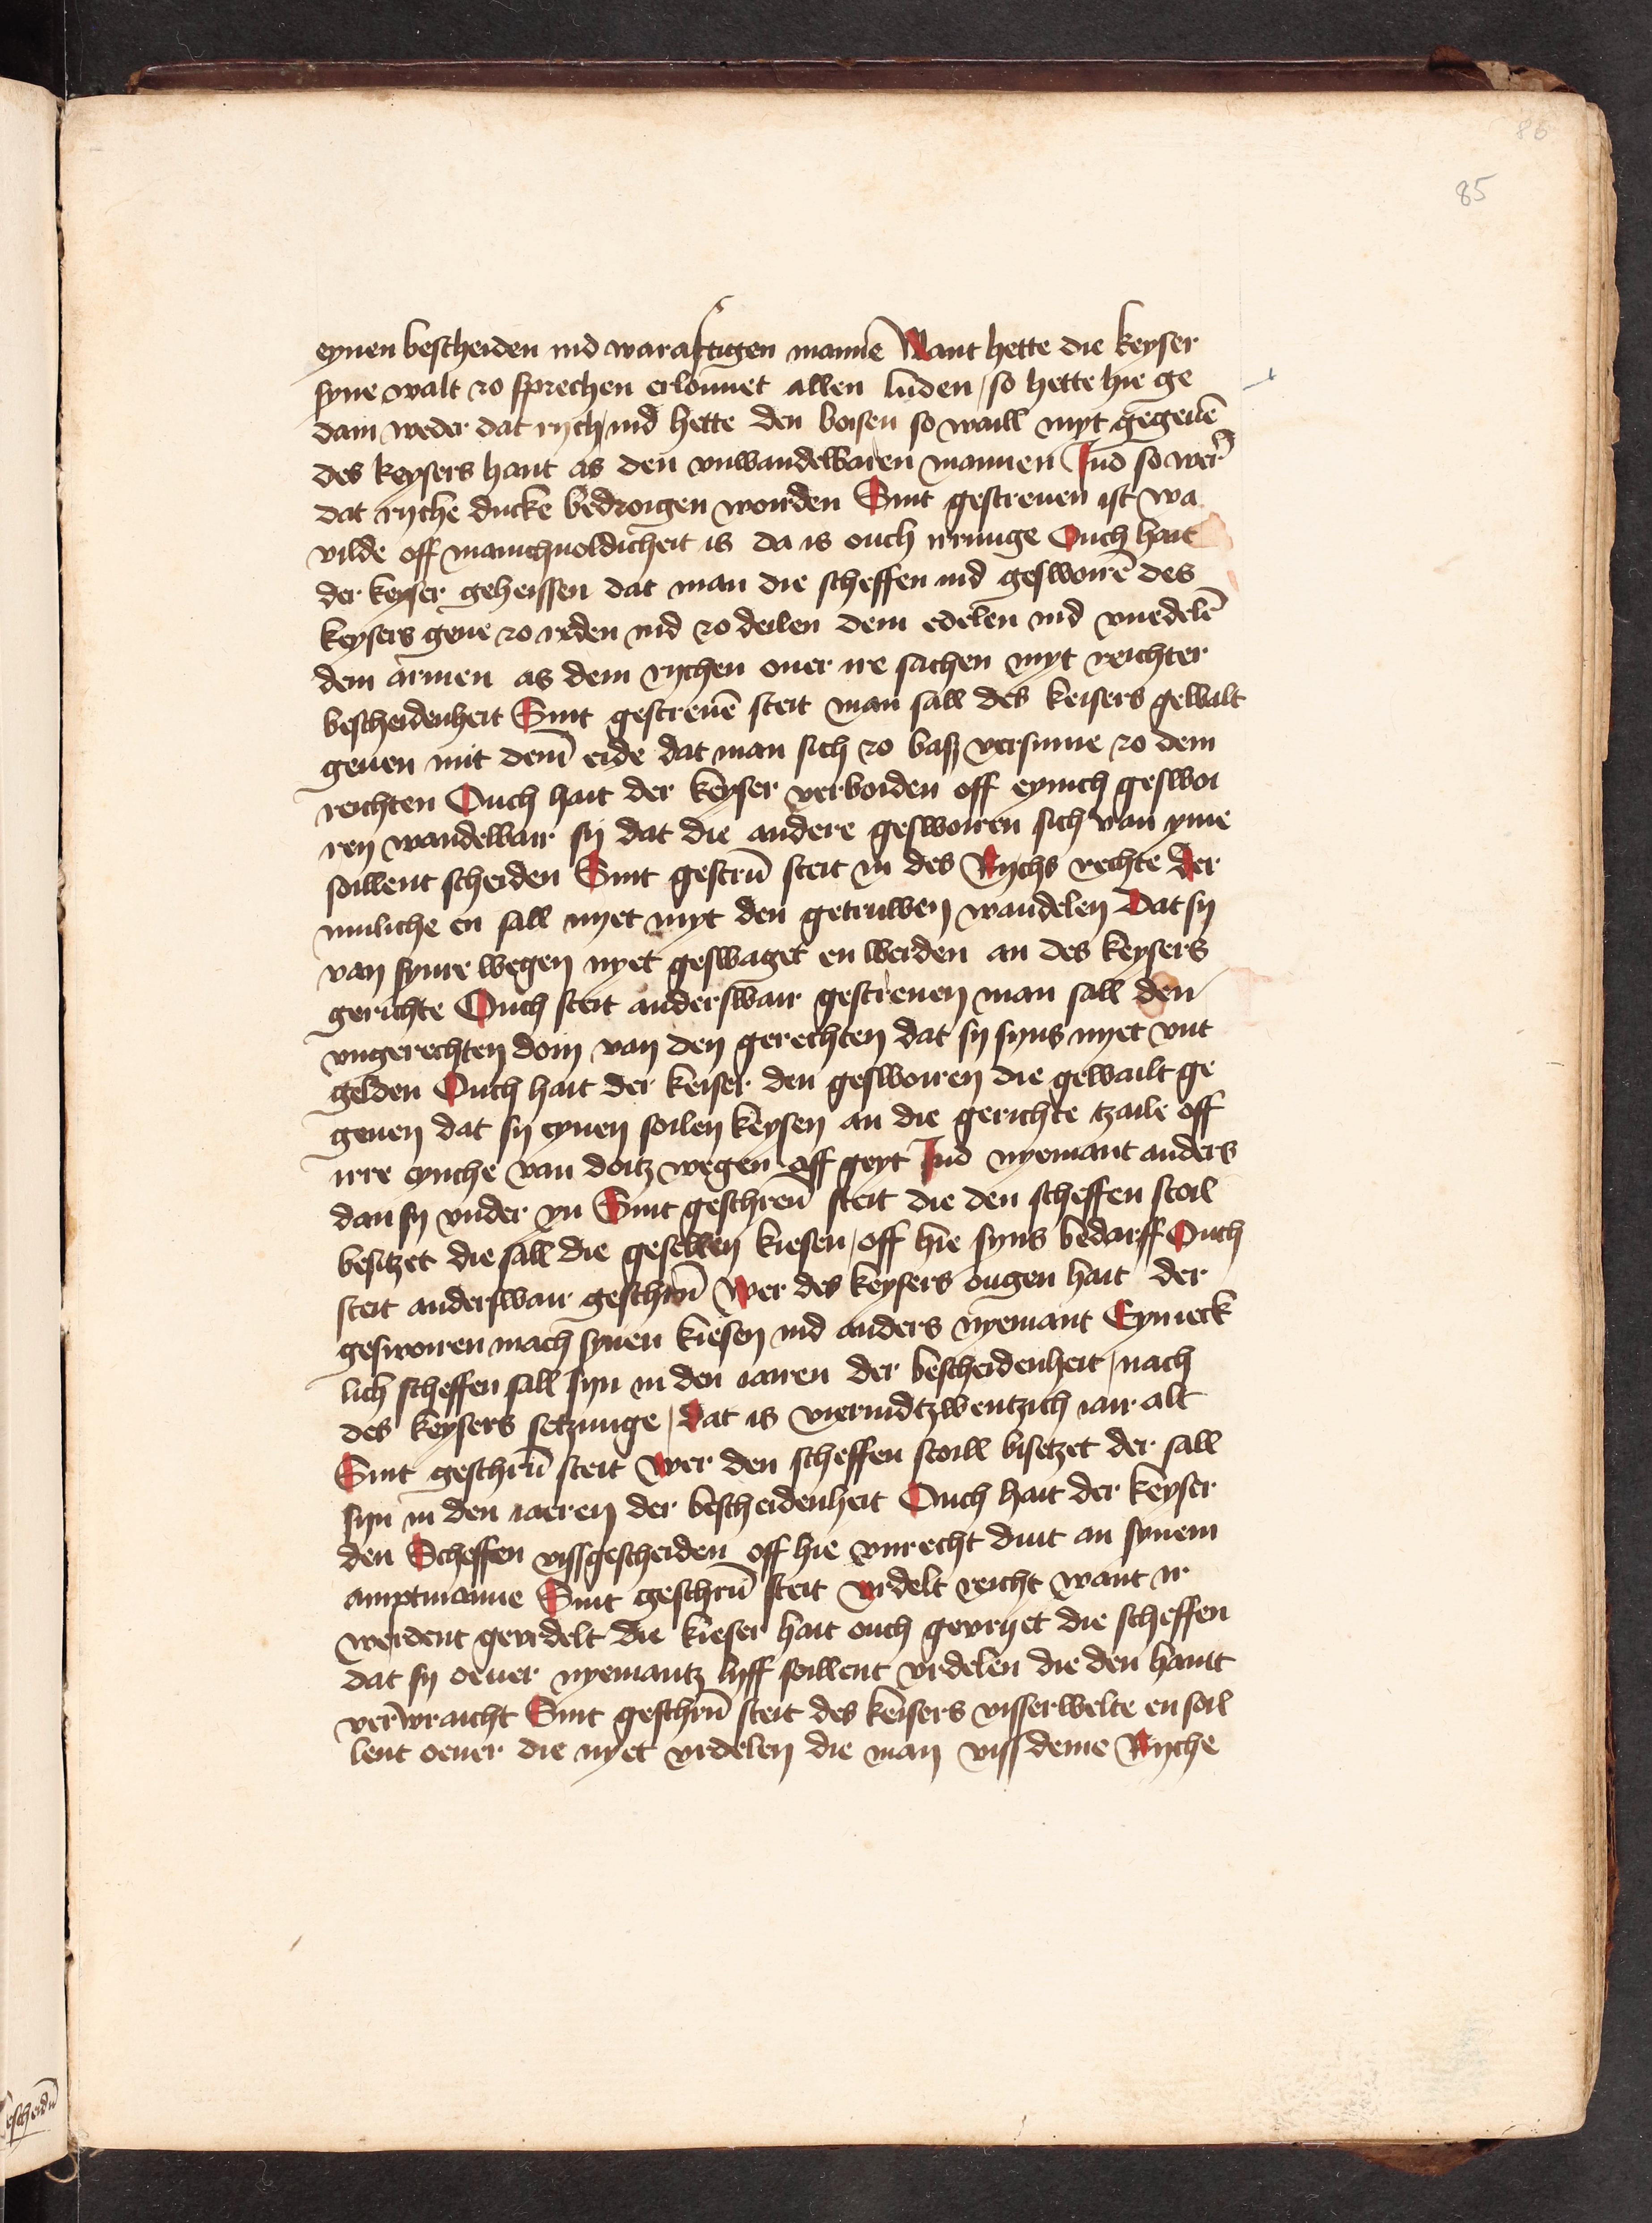 86
85
eynen bescheiden ind waraftigen manne Want hette die keyser
syne walt zo sprechen erlouuet allen luden / so hette hie ge
dain weder dat rych / ind hette den boisen so waill myt gegeuē
des keysers hant as den vnwandelbaren mannen Ind so wer
dat ryche ducke bedroigen worden Sint gescreuen ist wa
vilde off manichuoldicheit is da is ouch irrunge Ouch hait
der keyser geheissen dat man die scheffen ind geswoirē des
keysers geue zo irden ind zo deilen dem edelen ind vnedelē
dem armen as dem rychen ouer ire sachen myt reichter
bescheidenheit Sint gescreuē steit man sall des keisers gewalt
geuen mit dem eide dat man sich zo bass versinne zo dem
reichten Ouch hait der keyser verboiden off eynich geswoi
ren wandelbair sy dat die andere geswoiren sich van yme
soillent scheiden Sint gescrū steit in des Rychs rechte Der
 en sall nyet myt den getruwen wandelen Dat sy
van synre wegen nyet geswaget en werden an des keysers
gerichte Ouch steit anderswair gescreuen man sall den
vngerechten doin van den gerechten dat sy syns nyet vnt
gelden Ouch hait der keiser den geswoiren die gewailt ge
geuen dat sy eynen soilen keysen an die gerichte tzaile off
irre eynche van doitz wegen off geyt Ind nyemant anders
dan sy vnder yn Sint geschreū steit die den scheffen stoil
besitzet die sall die gesellen kiesen / off hie syns bedarff Ouch
steit anderswair geschrū wer des keysers ougen hait der
geswoiren mach synen kiesen ind anders nyemant Eymeck
lich scheffen sall syn in den iairen der bescheidenheit / nach
des keysers setzunge / dat is vierindtzwentzich iair alt
Sint geschrū steit wer den scheffen stoill bisetzet der sall
syn in den iaeren der bescheidenheit Ouch hait der keyser
den Scheffen vissgescheiden off hie vnrecht duit an synem
amptmanne Sint geschrū steit vrdelt reicht want ir
werdent gevrdelt die kieser hait ouch gevryet die scheffen
dat sy oeuer nyemantz lyff soillent vrdelen die den hantt
verwraicht Sint geschrū steit des keisers visserwelte en soil
lent oeuer die nyet vrdelen die man viss deme Ryche